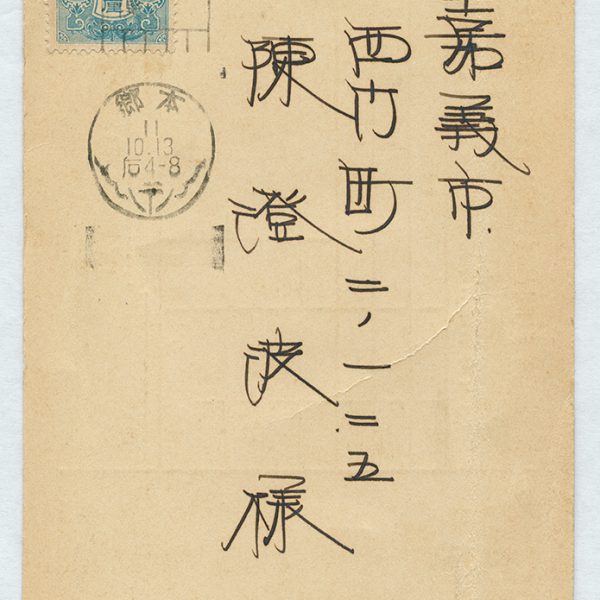 嘉義市
西門町二、一二五
陳澄波様
本鄉
11
10.13
后4-8